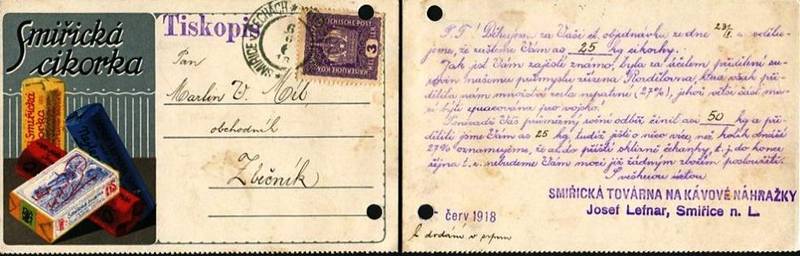 Smiřická
cikorka
Tiskopis
SMIŘICE V ČECHÁCH
3
Pan
Martin V. Mit
obchodník
Zbečník
Smiřická
cikorka
P.T.! Děkujeme za Vaši ct. objednávku ze dne a sdělu-
jeme, že zašleme Vám as 25 kg cikorky.
Jak jest Vám zajisté známo, byla za účelem přidělení su-
rovin našemu průmyslu zřízena která však při-
dělila nám množství zcela nepatrné (27%), jehož větší část mu-
sí býti zpracována pro vojsko!
Poněvadž Váš průměrný roční odběr činil asi 50 kg a při-
dělili jsme Vám as 25 kg tudíž jisti o něco více, než kolik činilo
27% oznamujeme, že až do příští sklizně čekanky, t. j. do konce
října t. r. nebudeme Vám moci již žádným zbožím posloužiti.
S veškerou úctou
SMIŘICKÁ TOVÁRNA NA KÁVOVÉ NÁHRAŽKY
Josef Lefnar, Smiřice n. L.
červ 1918
k dodání v srpnu